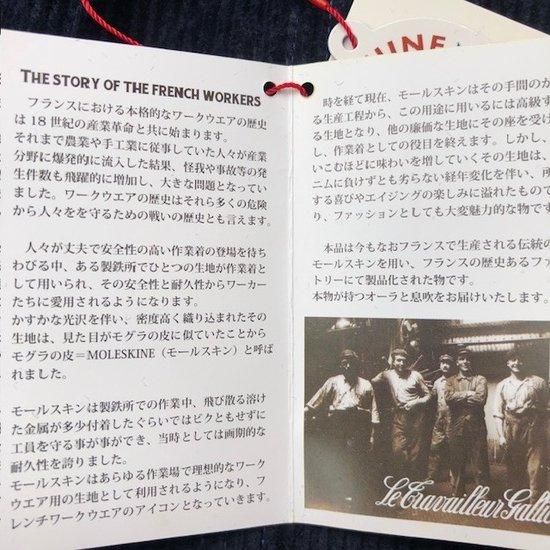 THE STORY OF THE FRENCH WORKERS
フランスにおける本格的なワークウエアの歴史
は18世紀の産業革命と共に始まります。
それまで農業や手工業に従事していた人々が産業
分野に爆発的に流入した結果、怪我や事故等の発
生件数も飛躍的に増加し、大きな問題となってい
ました。ワークウエアの歴史はそれら多くの危険
から人々をを守るための戦いの歴史とも言えます。
人々が丈夫で安全性の高い作業着の登場を待ち
わびる中、ある製鉄所でひとつの生地が作業着と
して用いられ、その安全性と耐久性からワーカー
たちに愛用されるようになります。
かすかな光沢を伴い、密度高く織り込まれたその
生地は、見た目がモグラの皮に似ていたことから
モグラの皮=MOLESKINE（モールスキン）と呼ば
れました。
モールスキンは製鉄所での作業中、飛び散る溶け
た金属が多少付着したぐらいではビクともせずに
工員を守る事が事ができ、当時としては画期的な
耐久性を誇りました。
モールスキンはあらゆる作業場で理想的なワーク
ウエア用の生地として利用されるようになり、フ
レンチワークウエアのアイコンとなっていきます。
時を経て現在、モールスキンはその手間のか
る生産工程から、この用途に用いるには高級す
る生地となり、他の廉価な生地にその座を受け
し、作業着としての役目を終えます。しかし、
いこむほどに味わいを増していくその生地は、
ニムに負けずとも劣らない経年変化を伴い、所
する喜びやエイジングの楽しみに溢れたもので
り、ファッションとしても大変魅力的な物です
本品は今もなおフランスで生産される伝統の
モールスキンを用い、フランスの歴史あるファ
トリーにて製品化された物です。
本物が持つオーラと息吹をお届けいたします。
Le Travailleur Gall